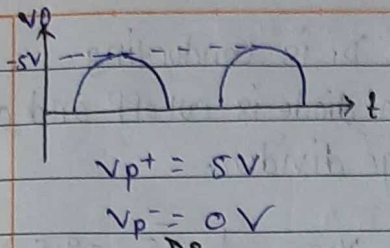 VD
-5V
t
Vp+ = 5V
Vp- = 0V